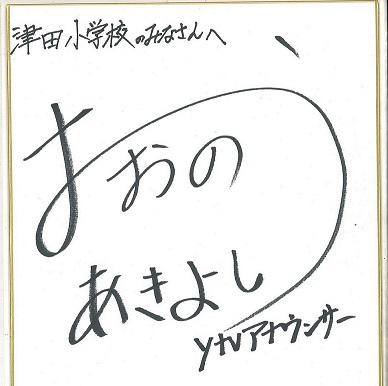 津田小学校のみなさんへ
おおの
あきよし
ytvアナウンサー